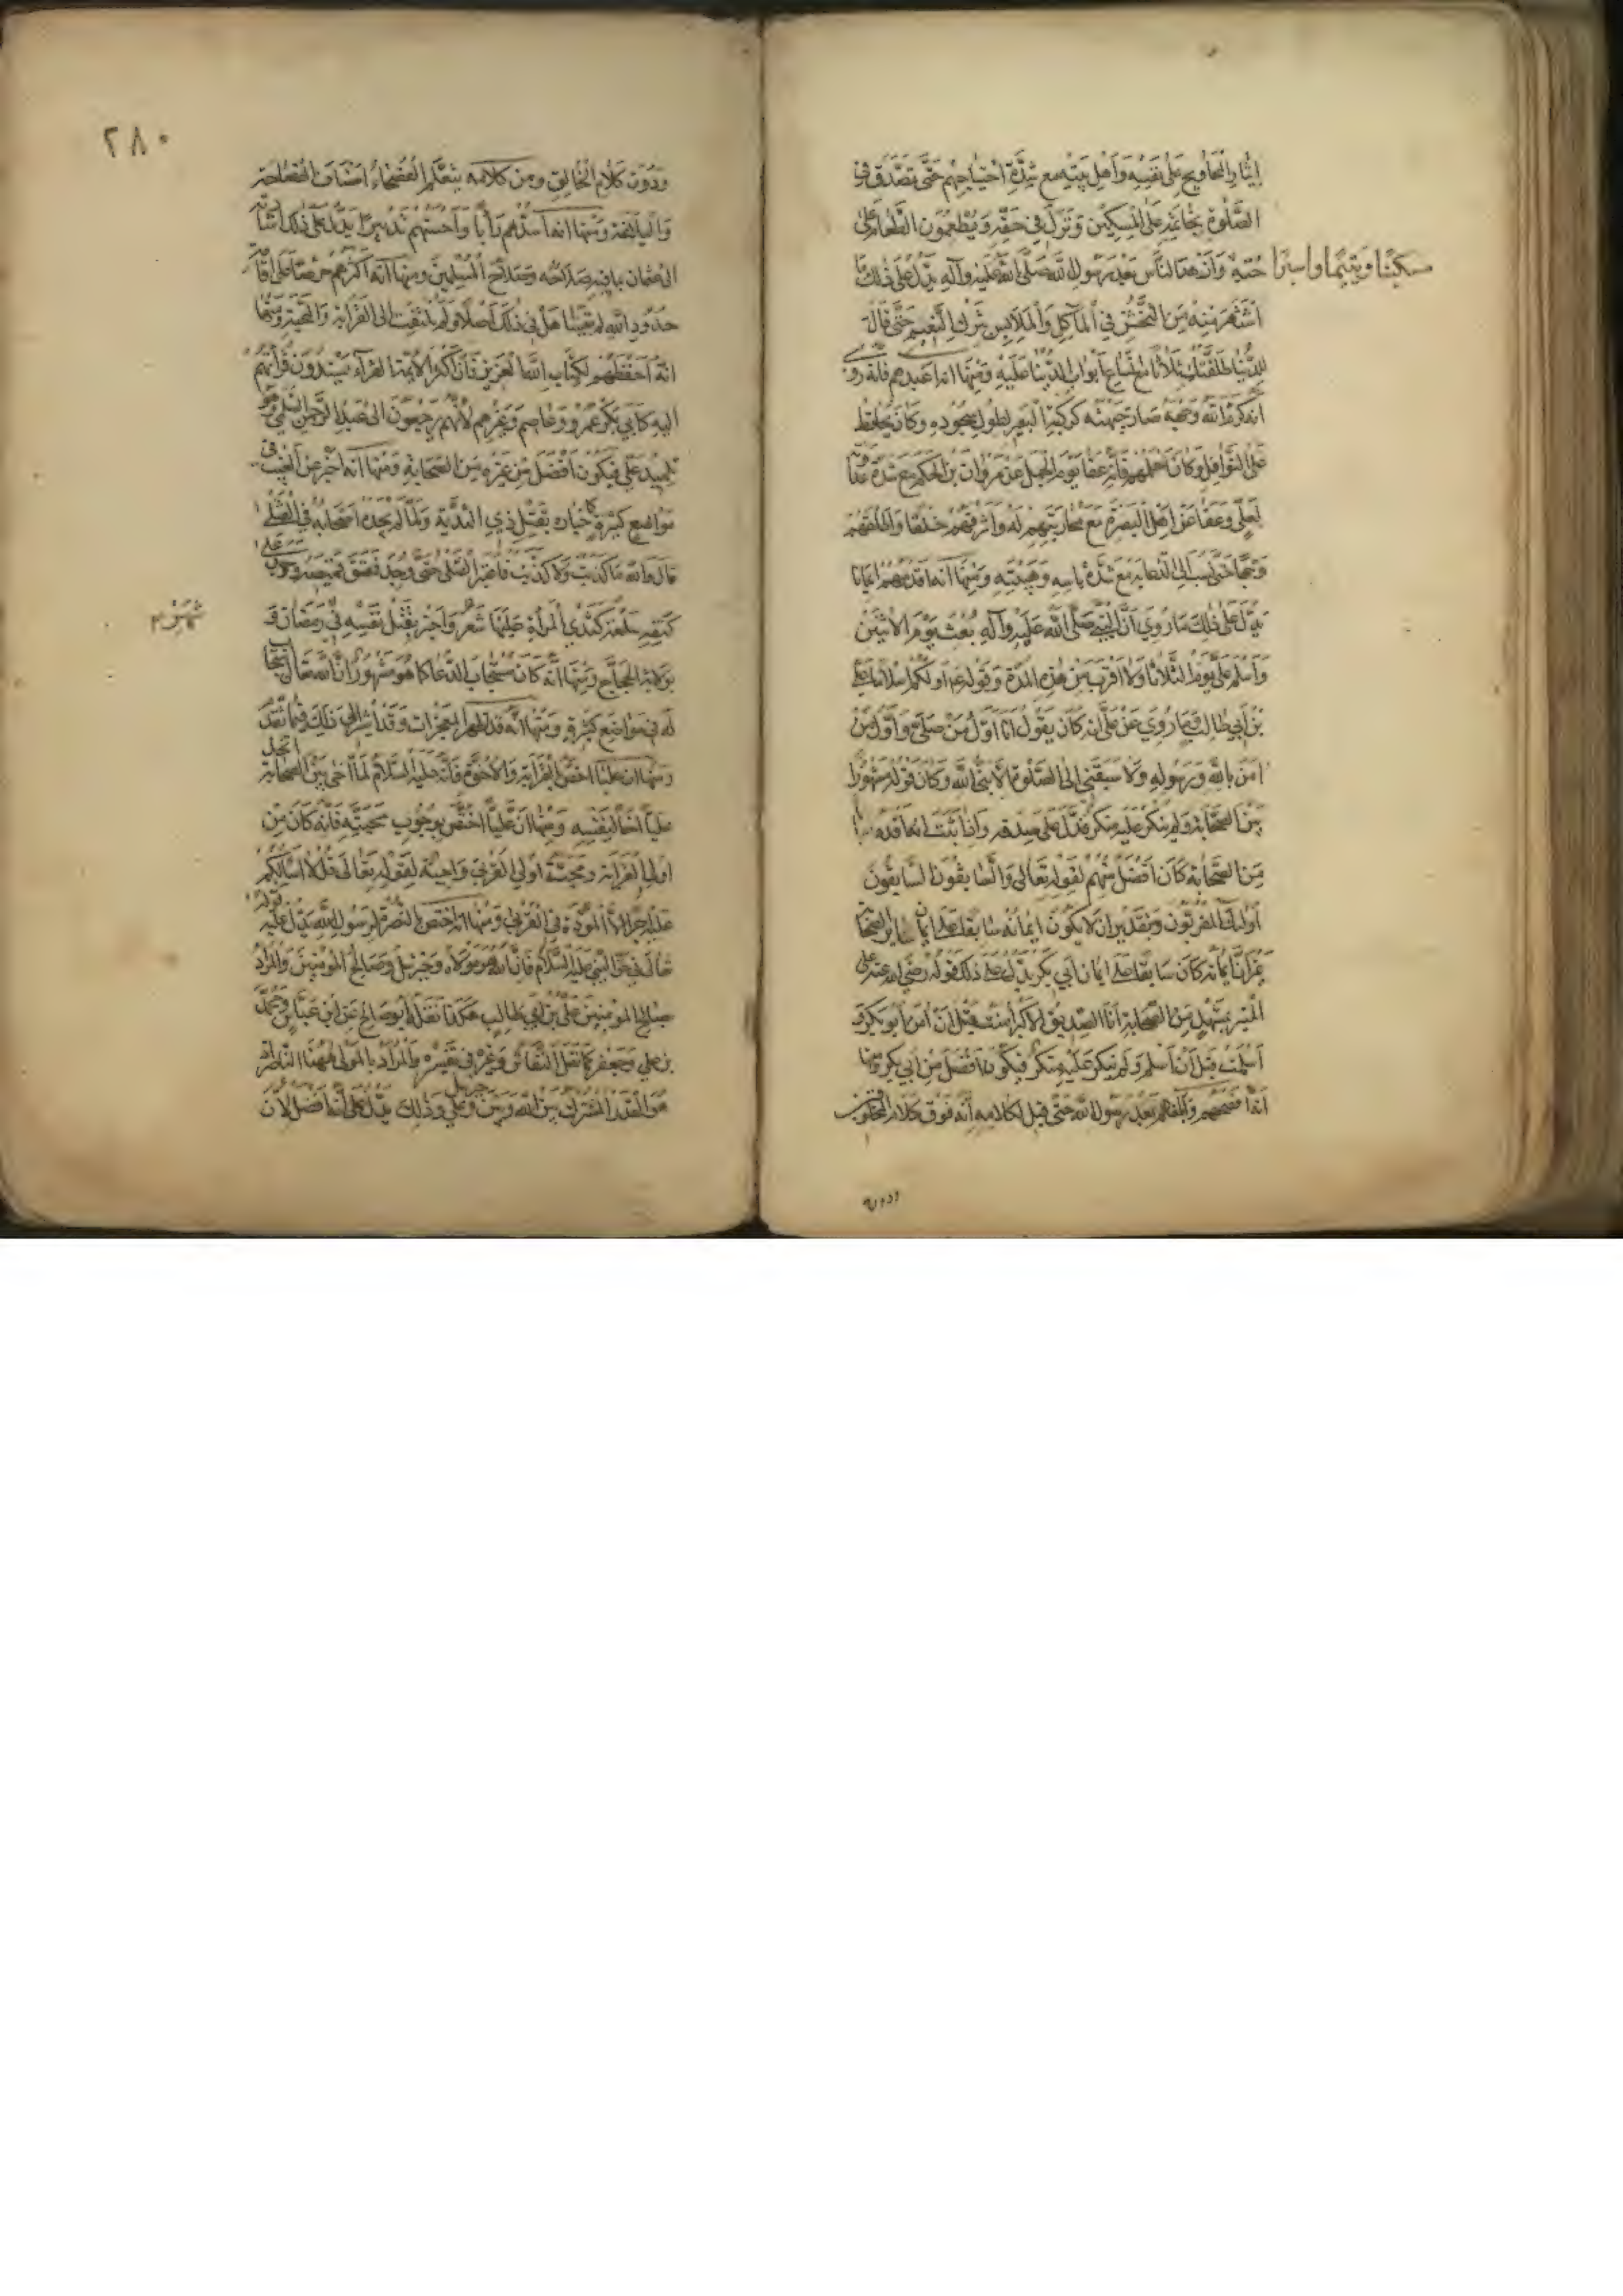 إيثار المحاويج على نفسه وأهل بيته مع شدة احتياجهم حتى تصدق في
الصلوة بخاتمه على المسكين ونزل في حقه ويطعمون الطعام على
حبه مسكينا ويتيما واسيرا وأزهد الناس بعد رسول الله صلى الله عليه وآله يدل على ذلك ما
اشتهر منه من التخشن في المآكل والملابس وترك التنعم حتى قال
للدنيا طلقتك ثلاثا مع اتساع أبواب الدنيا عليه ومنها انه اعبدهم فانه روي
انه كرم الله وجهه صار جبهته كركبة البعير لطول سجوده وكان يحافظ
على النوافل وكان احلمهم فانه عفا يوم الجمل عن مروان بن الحكم مع شدة عداوته
لعلي وعفا عن اهل البصرة مع محاربتهم له واشرفهم خلقا واطلقهم
وجها حتى نسب الى الدعابة مع شدة باسه وهيبته ومنها انه اقدمهم ايمانا
يدل على ذلك ما روي ان النبي صلى الله عليه وآله بعث يوم الاثنين
واسلم علي يوم الثلاثا ولا اقرب من هذه المدة وقوله عم اولكم اسلاما علي
بن أبي طالب وما روي عن علي انه كان يقول انا اول من صلى واول من
امن بالله ورسوله ولا سبقني الى الصلوة الا نبي الله وكان قوله مشهورا
بين الصحابة ولم ينكر عليه منكر فدل على صدقه واذا ثبت انه اقدم
من الصحابة كان افضل منهم لقوله تعالى والسابقون السابقون
اولئك المقربون وبتقدير ان لا يكون ايمانه سابقا على ايمان ساير الصحابة
غير ان ايمانه كان سابقا على ايمان أبي بكر يدل على ذلك قوله رضي الله عنه على
المنبر بمشهد من الصحابة انا الصديق الاكبر امنت قبل ان امن ابو بكر و
اسلمت قبل ان اسلم ولم ينكر عليه منكر فيكون افضل من ابي بكر ومنها
انه افصحهم وابلغهم بعد رسول الله حتى قيل لكلامه انه فوق كلام المخلوق
ودون
٢٨٠
ودون كلام الخالق ومن كلامه يتعلم الفصحاء اصناف الفصاحة
والبلاغة ومنها انه اسدهم رأيا واحسنهم تدبيرا يدل على ذلك
الى عثمان بما فيه صلاحه وصلاح المسلمين ومنها انه اكثرهم حرصا على اقامة
حدود الله لم يتساهل في ذلك اصلا ولم يلتفت الى القرابة والمحبة ومنها
انه احفظهم لكتاب الله العزيز فان اكثر الأيمة القراء يسندون قرأتهم
اليه كابي عمرو وعاصم وغيرهم لانهم يرجعون الى عبد الرحمن السلمي وهو
تلميذ علي فيكون افضل من غيره من الصحابة ومنها انه اخبر عن الغيب في
مواضع كثيرة كاخباره بقتل ذي الثدية ولما لم يجده اصحابه في القتلى
قال والله ما كذبت ولا كذبت فاعتبر القتلى حتى وجد فشق قميصه ووجد على
كتفه سلعة كثدي المرأة عليها شعر واخبر بقتل نفسه في رمضان و
بولاية الحجاج ومنها انه كان مستجاب الدعا كما هو مشهور ان الله تعالى استجاب
له في مواضع كثيرة ومنها انه قد ظهر المعجزات وقد اشير الى ذلك فيما تقدم
ومنها ان عليا اختص بالقرابة والاخوة فانه عليه السلام لما اخى بين الصحابة اتخذ
عليا اخا لنفسه ومنها ان عليا اختص بوجوب محبته فانه كان من
اولي القرابة ومحبة اولي القربى واجبة لقوله تعالى قل لا اسالكم
عليه اجرا الا المودة في القربى ومنها انه اختص بالنصرة لرسول الله يدل عليه قوله
تعالى في حق النبي عليه السلام فان الله هو مولاه وجبريل وصالح المومنين والمراد
صالح المومنين علي بن ابي طالب هكذا نقله ابو صالح عن ابن عباس ومحمد
بن علي وجعفر كما نقل النقاش وغيره في تفسيره والمراد بالمولى ههنا الناصر
هو القدر المشترك بين الله وبين جبريل وعلي وذلك يدل على انه افضل لان